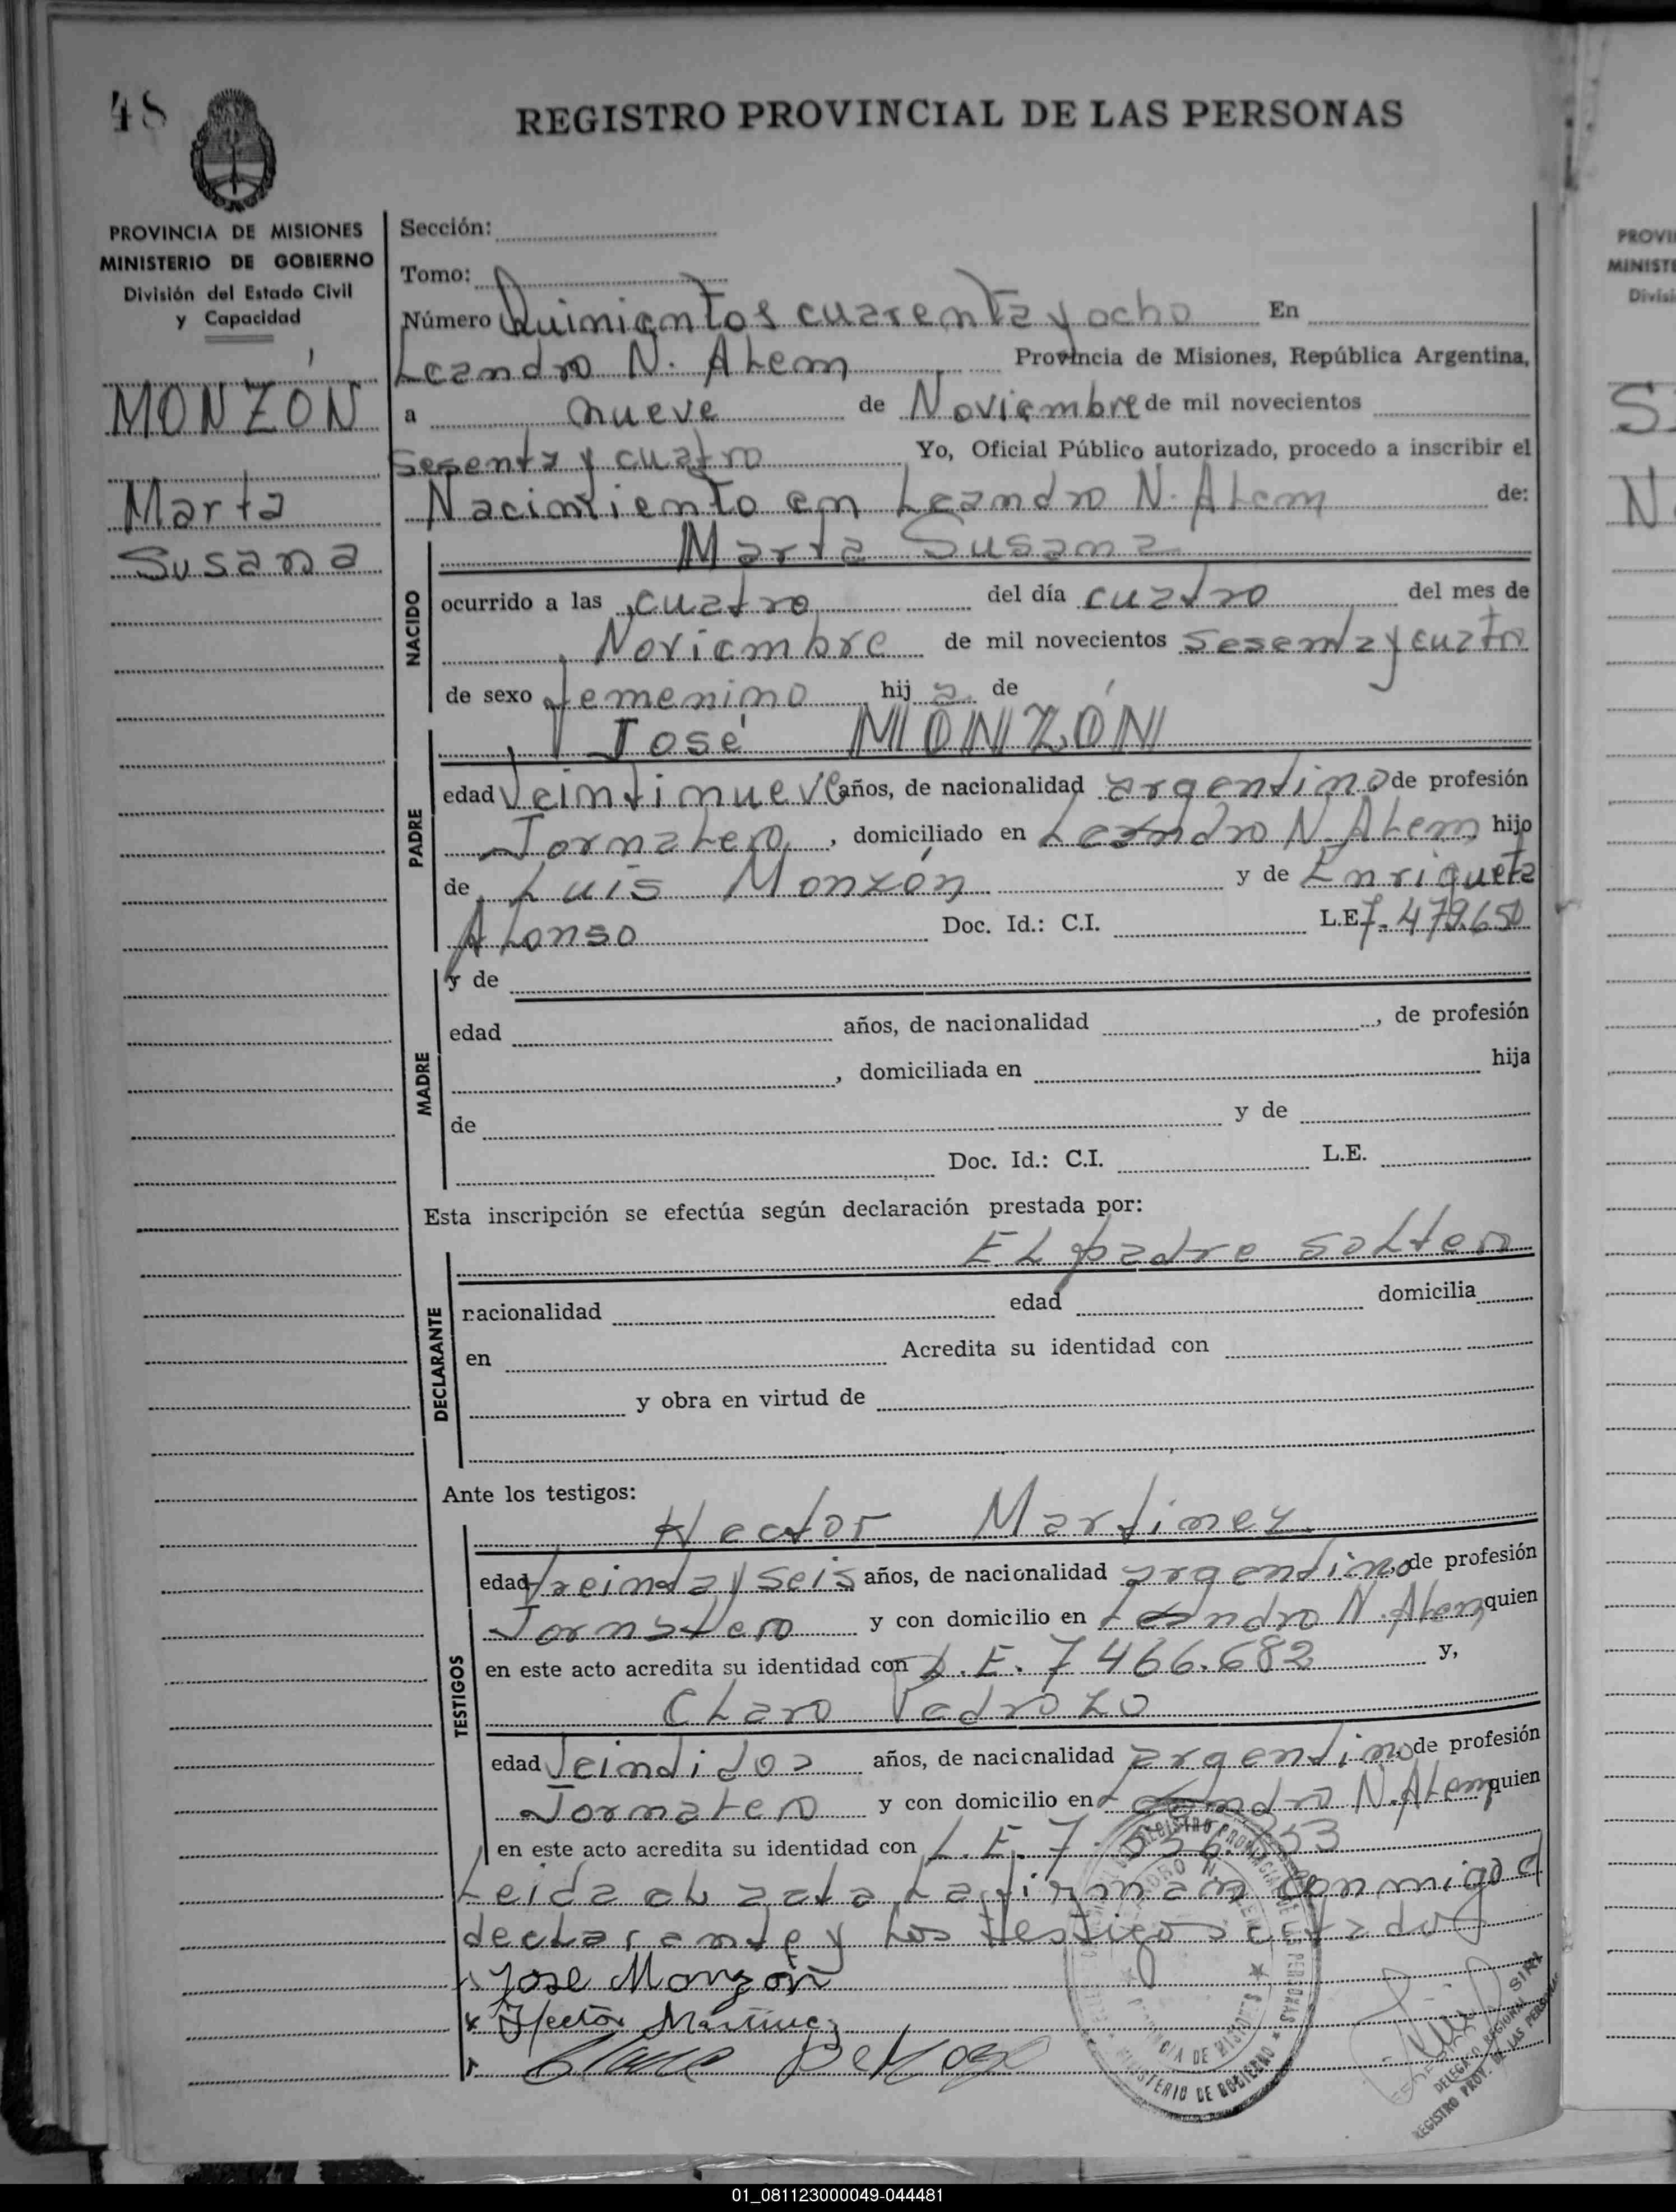 48
REGISTRO PROVINCIAL DE LAS PERSONAS
PROVINCIA DE MISIONES
MINISTERIO DE GOBIERNO
División del Estado Civil
y Capacidad
MONZÓN
Marta
Susana
Sección:
Tomo:
Número Quinientos cuarenta y ocho En
Leandro N. Alem Provincia de Misiones, República Argentina,
a nueve de Noviembre de mil novecientos
Sesenta y cuatro Yo, Oficial Público autorizado, procedo a inscribir el
Nacimiento en Leandro N. Alem de:
NACIDO
Marta Susana
ocurrido a las cuatro del día cuatro del mes de
Noviembre de mil novecientos sesenta y cuatro
de sexo femenino hij a de
PADRE
José MONZÓN
edad Veintinueve años, de nacionalidad argentino de profesión
Jornalero, domiciliado en Leandro N. Alem hijo
de Luis Monzón y de Enriqueta
Alonso Doc. Id.: C.I. L.E. 7.479.650
MADRE
y de
edad años, de nacionalidad , de profesión
, domiciliada en hija
de y de
Doc. Id.: C.I. L.E.
Esta inscripción se efectúa según declaración prestada por:
DECLARANTE
El padre soltero
nacionalidad edad domicilia
en Acredita su identidad con
y obra en virtud de
Ante los testigos:
TESTIGOS
Hector Martinez
edad treinta y seis años, de nacionalidad argentino de profesión
Jornalero y con domicilio en Leandro N. Alem quien
en este acto acredita su identidad con L.E. 7.466.682 y,
Claro Pedrozo
edad Veintidos años, de nacionalidad argentino de profesión
Jornalero y con domicilio en Leandro N. Alem quien
en este acto acredita su identidad con L.E. 7.
Leida el acta la firman conmigo el
declarante y los testigos citados
Jose Monzón
Hector Martinez
REGISTRO PROVINCIAL DE LAS PERSONAS
MINISTERIO DE GOBIERNO
PROVINCIA DE MISIONES
DELEGADO REGIONAL
REGISTRO PROV. DE LAS PERSONAS
PROVI
MINISTE
Divisi
S
N
01_081123000049-044481